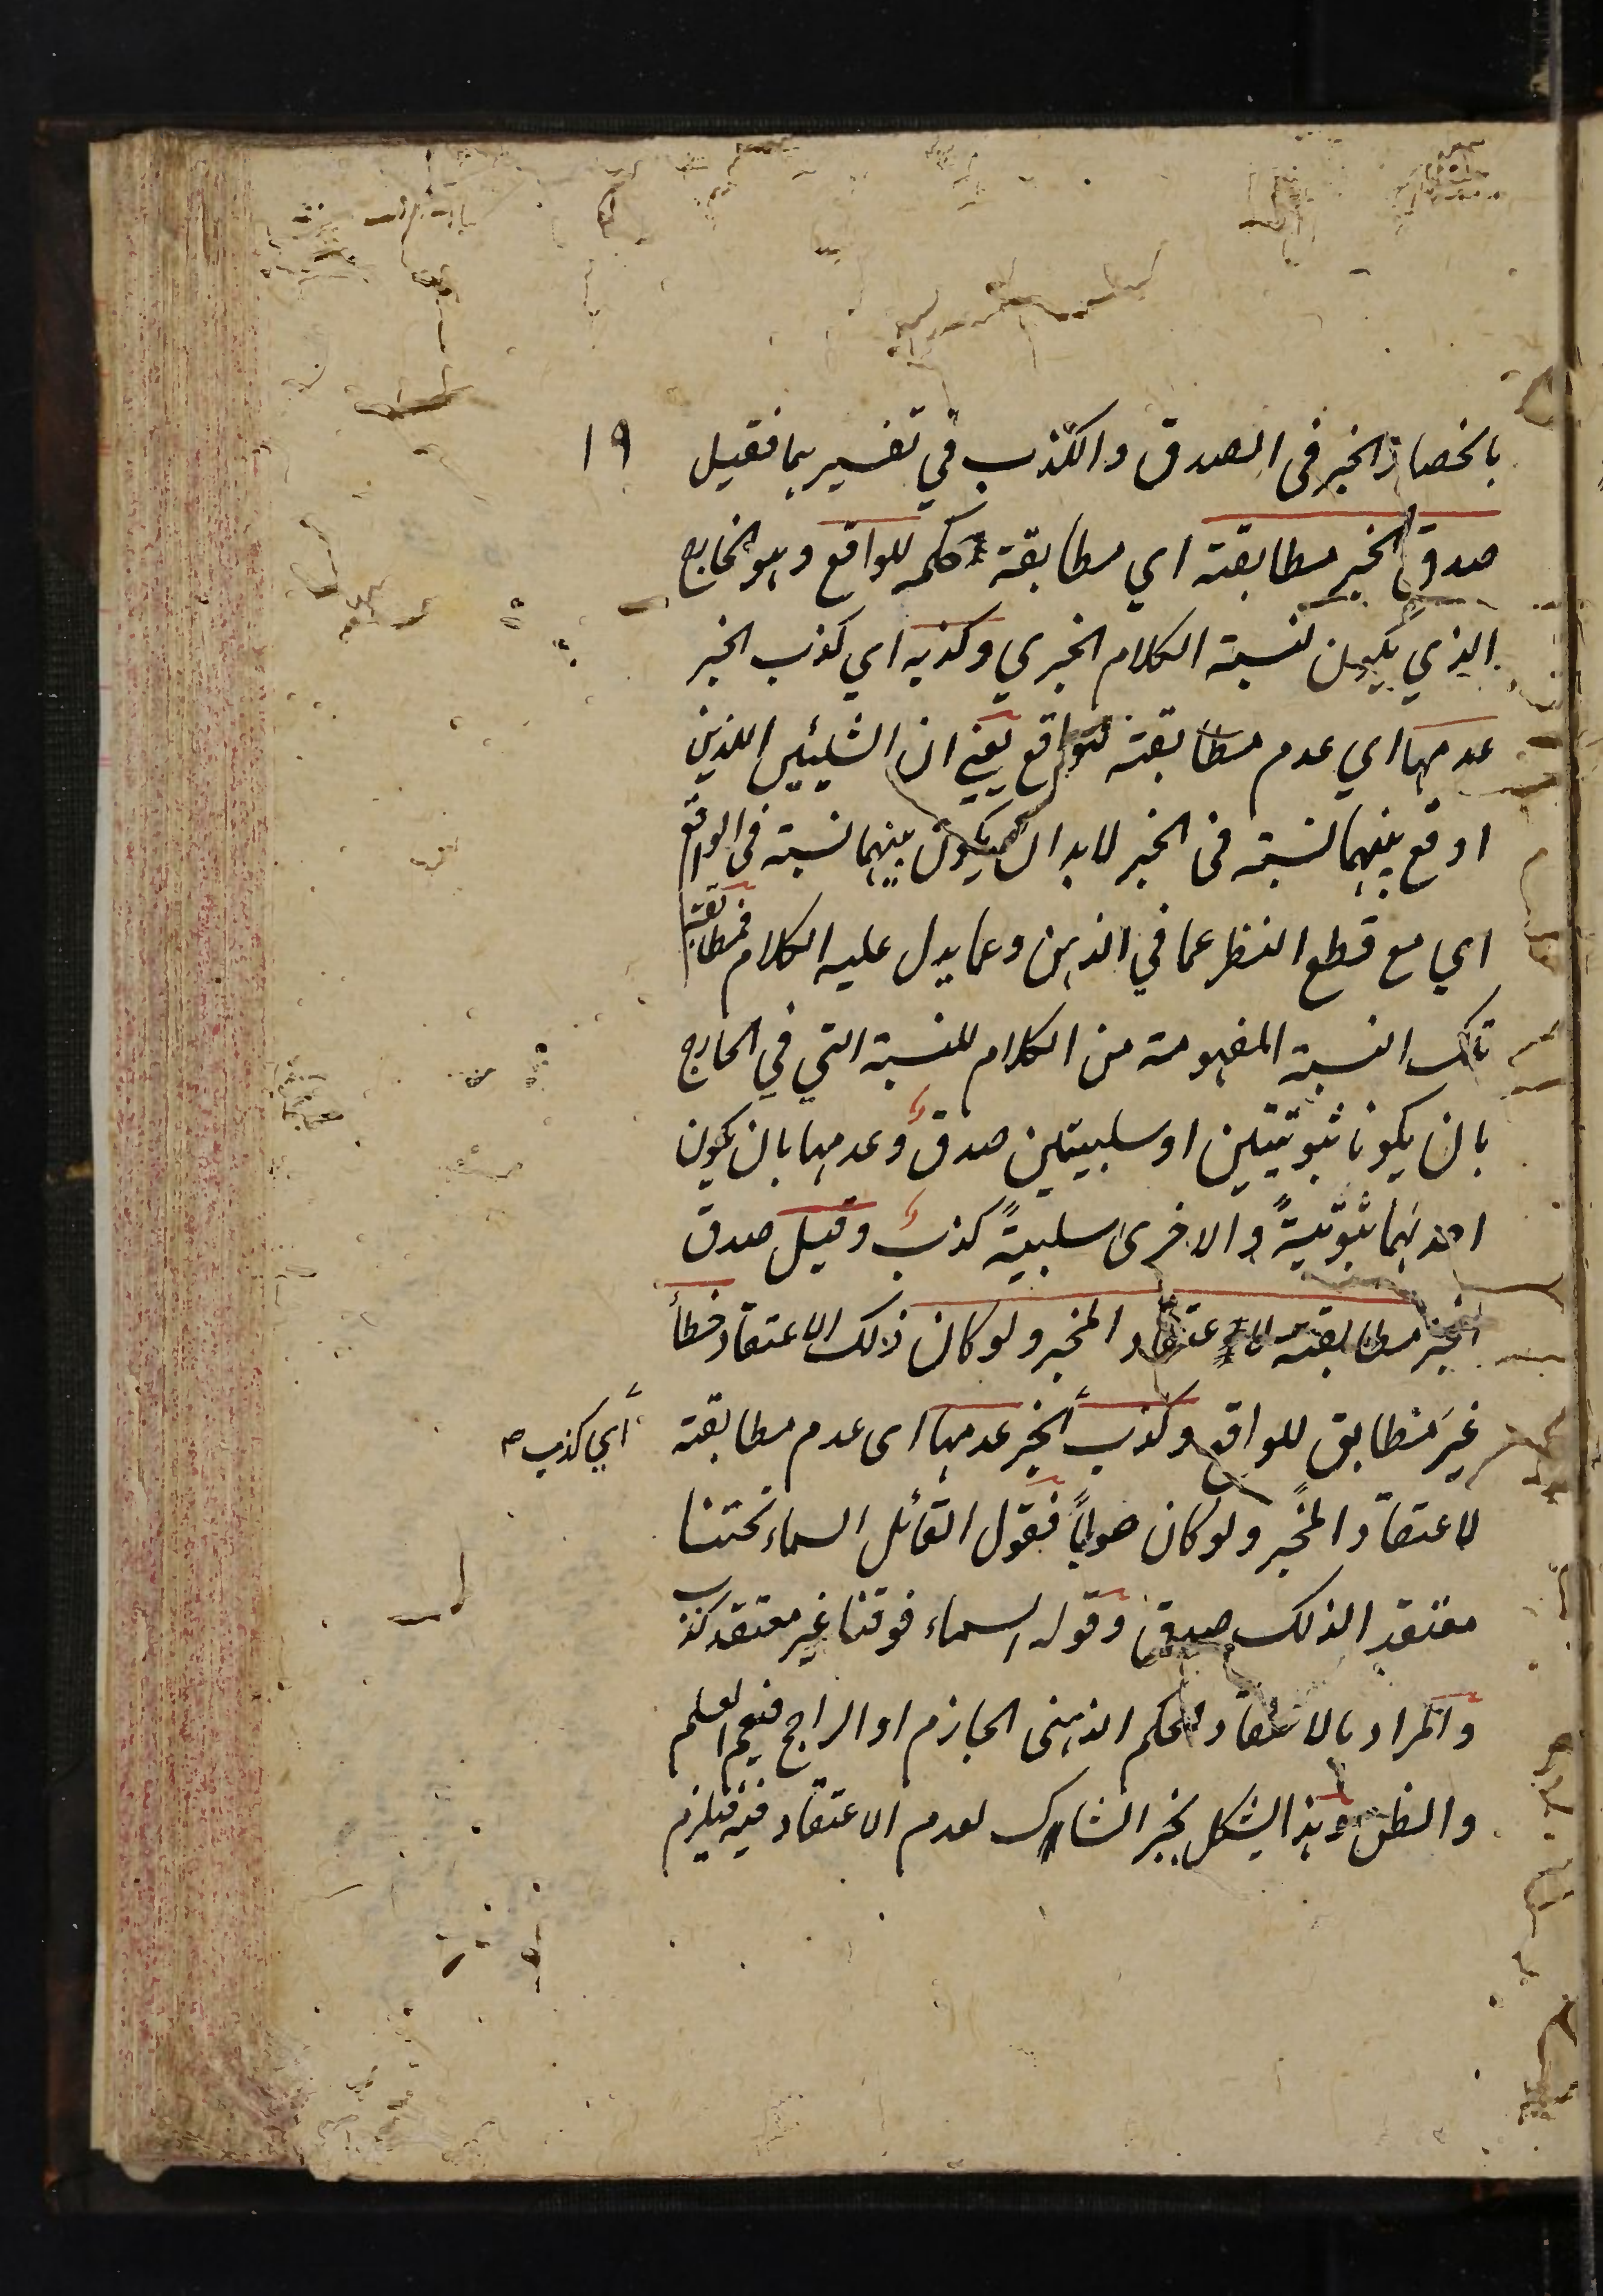 بانحصار الخبر في الصدق والكذب في تفسيرهما فقيل
١٩
صدق الخبر مطابقته اي مطابقة حكمه للواقع وهو الخارج
الذي يكون لنسبة الكلام الخبري وكذبه اي كذب الخبر
عدمها اي عدم مطابقته للواقع يعني ان الشيئين اللذين
اوقع بينهما نسبة في الخبر لابد ان يكون بينهما نسبة في الواقع
اي مع قطع النظر عما في الذهن وعما يدل عليه الكلام فمطابقة
تلك النسبة المفهومة من الكلام للنسبة التي في الخارج
بان يكونا ثبوتيتين او سلبيتين صدق وعدمها بان يكون
احدهما ثبوتيةً والاخرى سلبيةً كذب وقيل صدق
الخبر مطابقته لاعتقاد المخبر ولو كان ذلك الاعتقاد خطأ
غيرَ مطابق للواقع وكذب الخبر عدمها اى عدم مطابقته
أي كذب
لاعتقاد المخبر ولو كان صواباً فقول القائل السماء تحتنا
معتقدا لذلك صدق وقوله السماء فوقنا غير معتقد كذب
والمراد بالاعتقاد الحكم الذهنى الجازم او الراجح فيعم العلم
والظن وهذا يشكل بخبر الشاك لعدم الاعتقاد فيه فيلزم